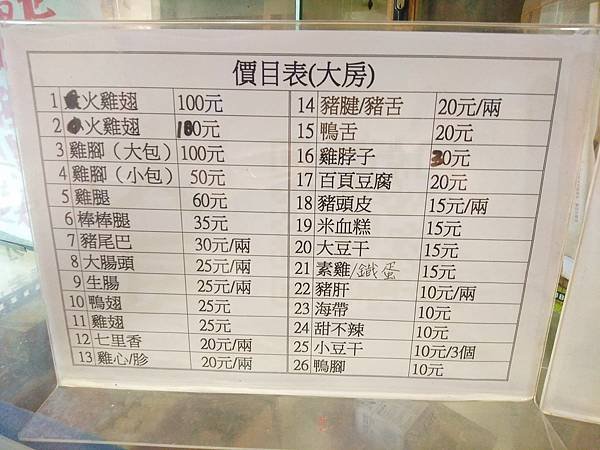 價目表(大房)
1 火雞翅 100元
2 火雞翅 180元
3 雞腳（大包） 100元
4 雞腳（小包） 50元
5 雞腿 60元
6 棒棒腿 35元
7 豬尾巴 30元/兩
8 大腸頭 25元/兩
9 生腸 25元/兩
10 鴨翅 25元
11 雞翅 25元
12 七里香 20元/兩
13 雞心/胗 20元/兩
14 豬腱/豬舌 20元/兩
15 鴨舌 20元
16 雞脖子 30元
17 百頁豆腐 20元
18 豬頭皮 15元/兩
19 米血糕 15元
20 大豆干 15元
21 素雞/鐵蛋 15元
22 豬肝 10元/兩
23 海帶 10元
24 甜不辣 10元
25 小豆干 10元/3個
26 鴨腳 10元